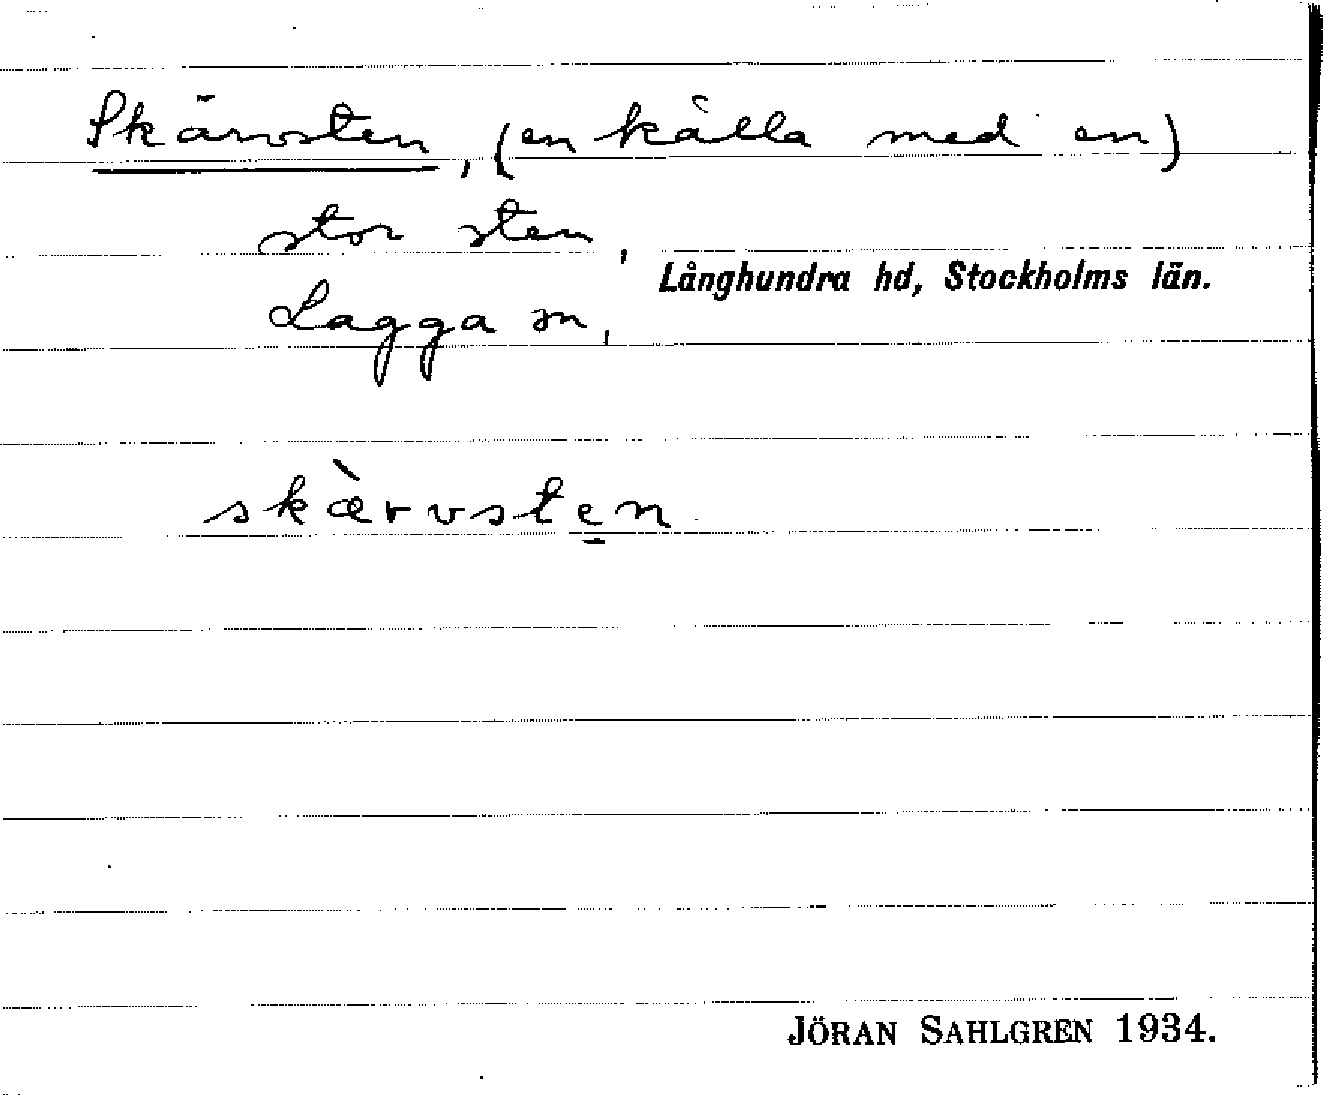 Skärvsten, (en källa med en)
stor sten,
Långhundra hd, Stockholms län.
Lagga sn,
skæ̀rvstẹn
JÖRAN SAHLGREN 1934.